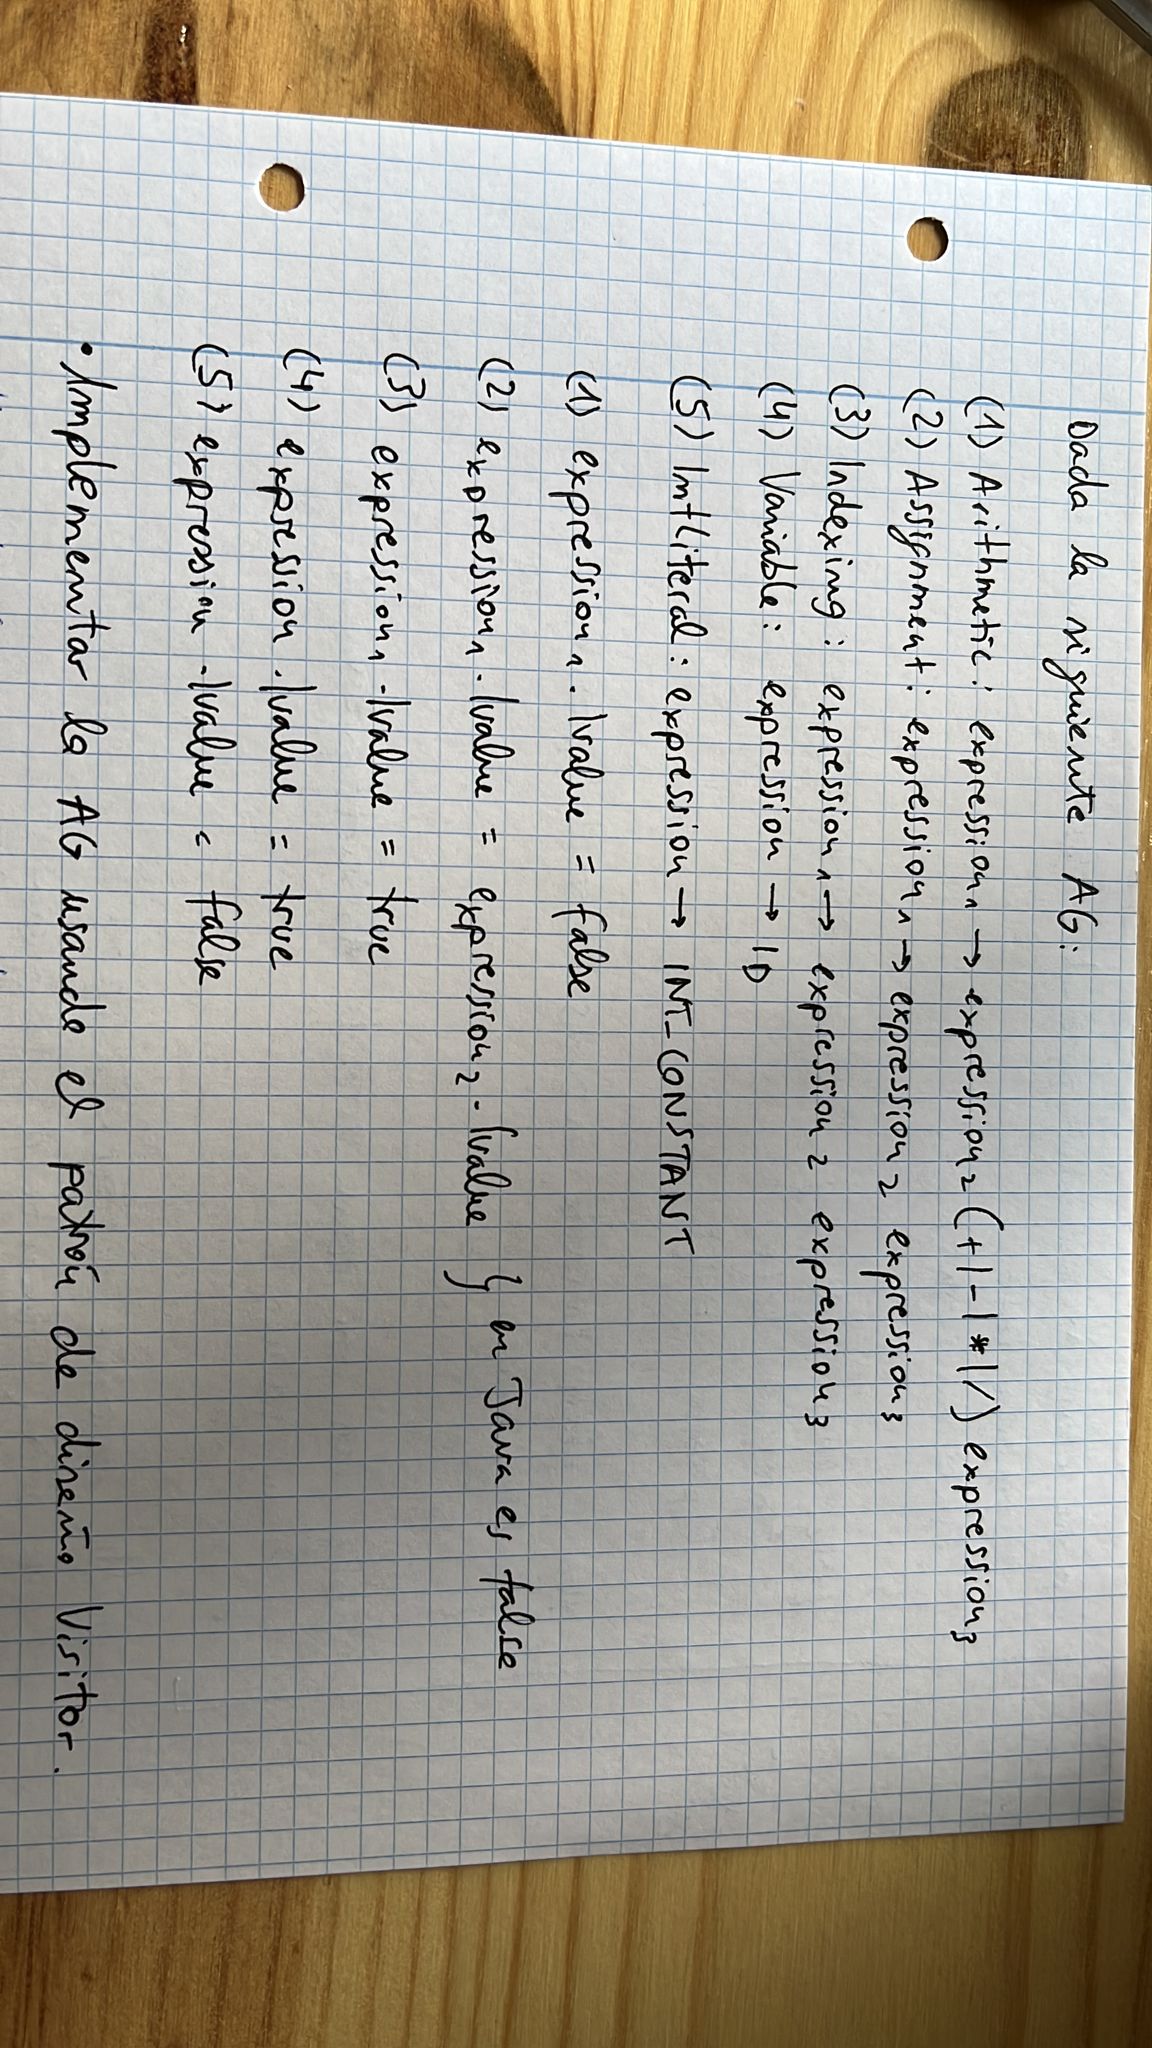 Dada la siguiente AG:
(1) Arithmetic: expression₁ → expression₂ (+|-|*|/) expression₃
(2) Assignment: expression₁ → expression₂ expression₃
(3) Indexing: expression₁ → expression₂ expression₃
(4) Variable: expression → ID
(5) IntLiteral: expression → INT_CONSTANT
(1) expression₁.lvalue = false
(2) expression₁.lvalue = expression₂.lvalue } en Java es false
(3) expression₁.lvalue = true
(4) expression.lvalue = true
(5) expression.lvalue = false
• Implementar la AG usando el patrón de diseño Visitor.